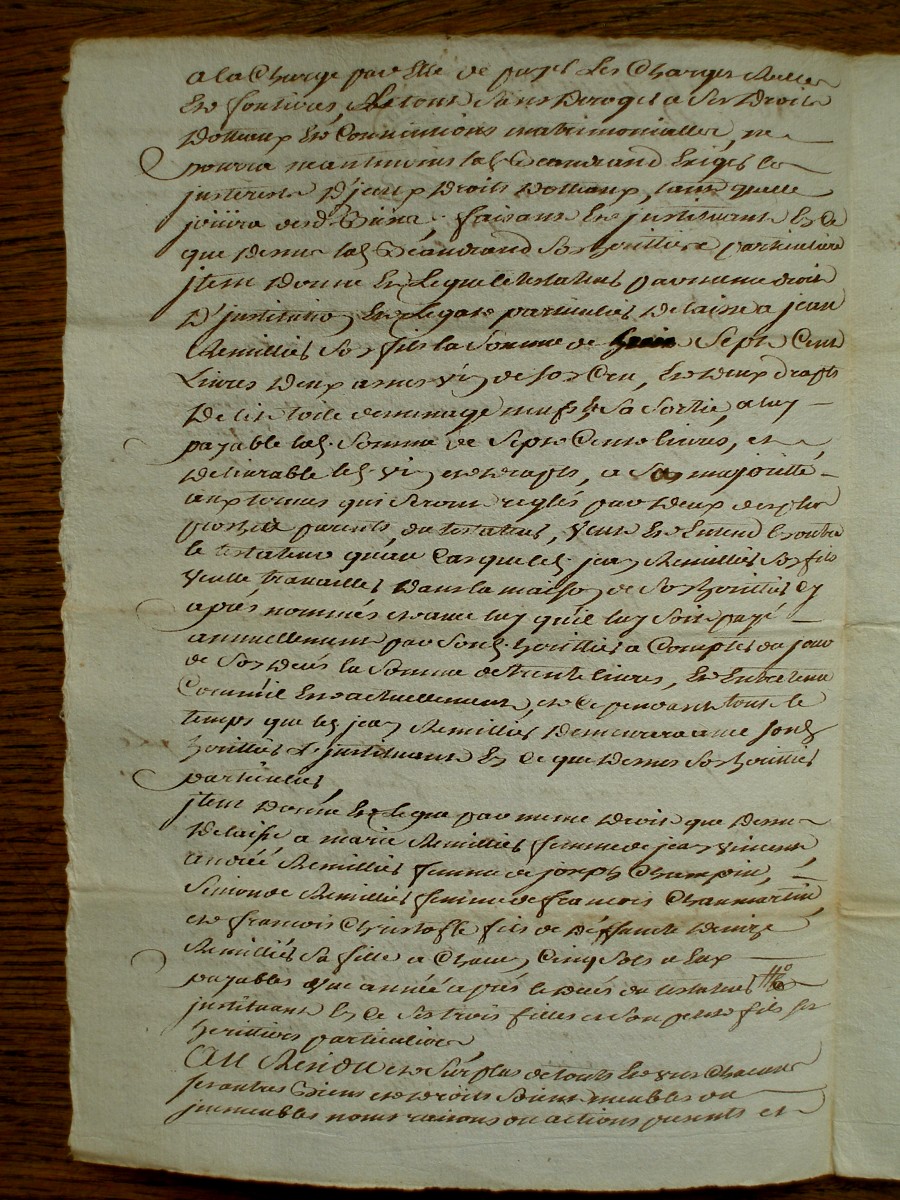 a la Charge par Elle de payer les Charges Reelles
Et fontieres, le tout sans deroger a ses Droits
Dottaux Et Conventions matrimonialles, ne
pourra neantmoins lad. Beaudrand Exiger les
jnterests D'jceux Droits Dottaux, tant quelle
jouira desd. Biens, faisant Et jnstituant En Ce
que Dessus lad. Beaudrand son heritiere particuliere
jtem Donne Et Legue le testateur par meme droit
D'jnstitution Et Legat particulier Delaisse a jean
Remillier son fils la somme de sept Cent
Livres Deux asnees vin de son Cru, Et Deux draps
De lit toile de menage neufs a sa sortie, a luy
payable lad. somme de sept Cent livres, et
Delivrable led. vin et draps, a sa majorité
aux termes qui seront reglés par Deux des plus
proches parents du testateur, veut Et Entend En outre
le testateur qu'au Cas que led. jean Remillier son fils
veuille travailler Dans la maison de son heritier Cy
après nommé et avec luy qu'il luy soit payé
annuellement par sond. heritier a Compter du jour
de son decés la somme de trente livres, Et Entretenu
Comme il Est actuellement, et Ce pendant tout le
temps que led. jean Remillier Demeurera avec sond.
heritier L'jnstituant En Ce que Dessus son heritier
particulier,
jtem Donne Et Legue par meme Droit que Dessus
Delaisse a marie Remillier femme de jean vincent,
andrée Remillier femme de joseph Champin,
simonde Remillier femme de francois Chaumartin,
et francois Christofle fils de Deffunte Denize
Remillier sa fille a Chacun Cinq sols a Eux
payables une année après le deces du testateur
jnstituant En Ce ses trois filles et son petit fils ses
heritiers particuliers
Au Residu et surplus de touts Et uns Chacuns
ses autres Biens et droits soient meubles ou
jmmeubles noms raisons ou actions presents et